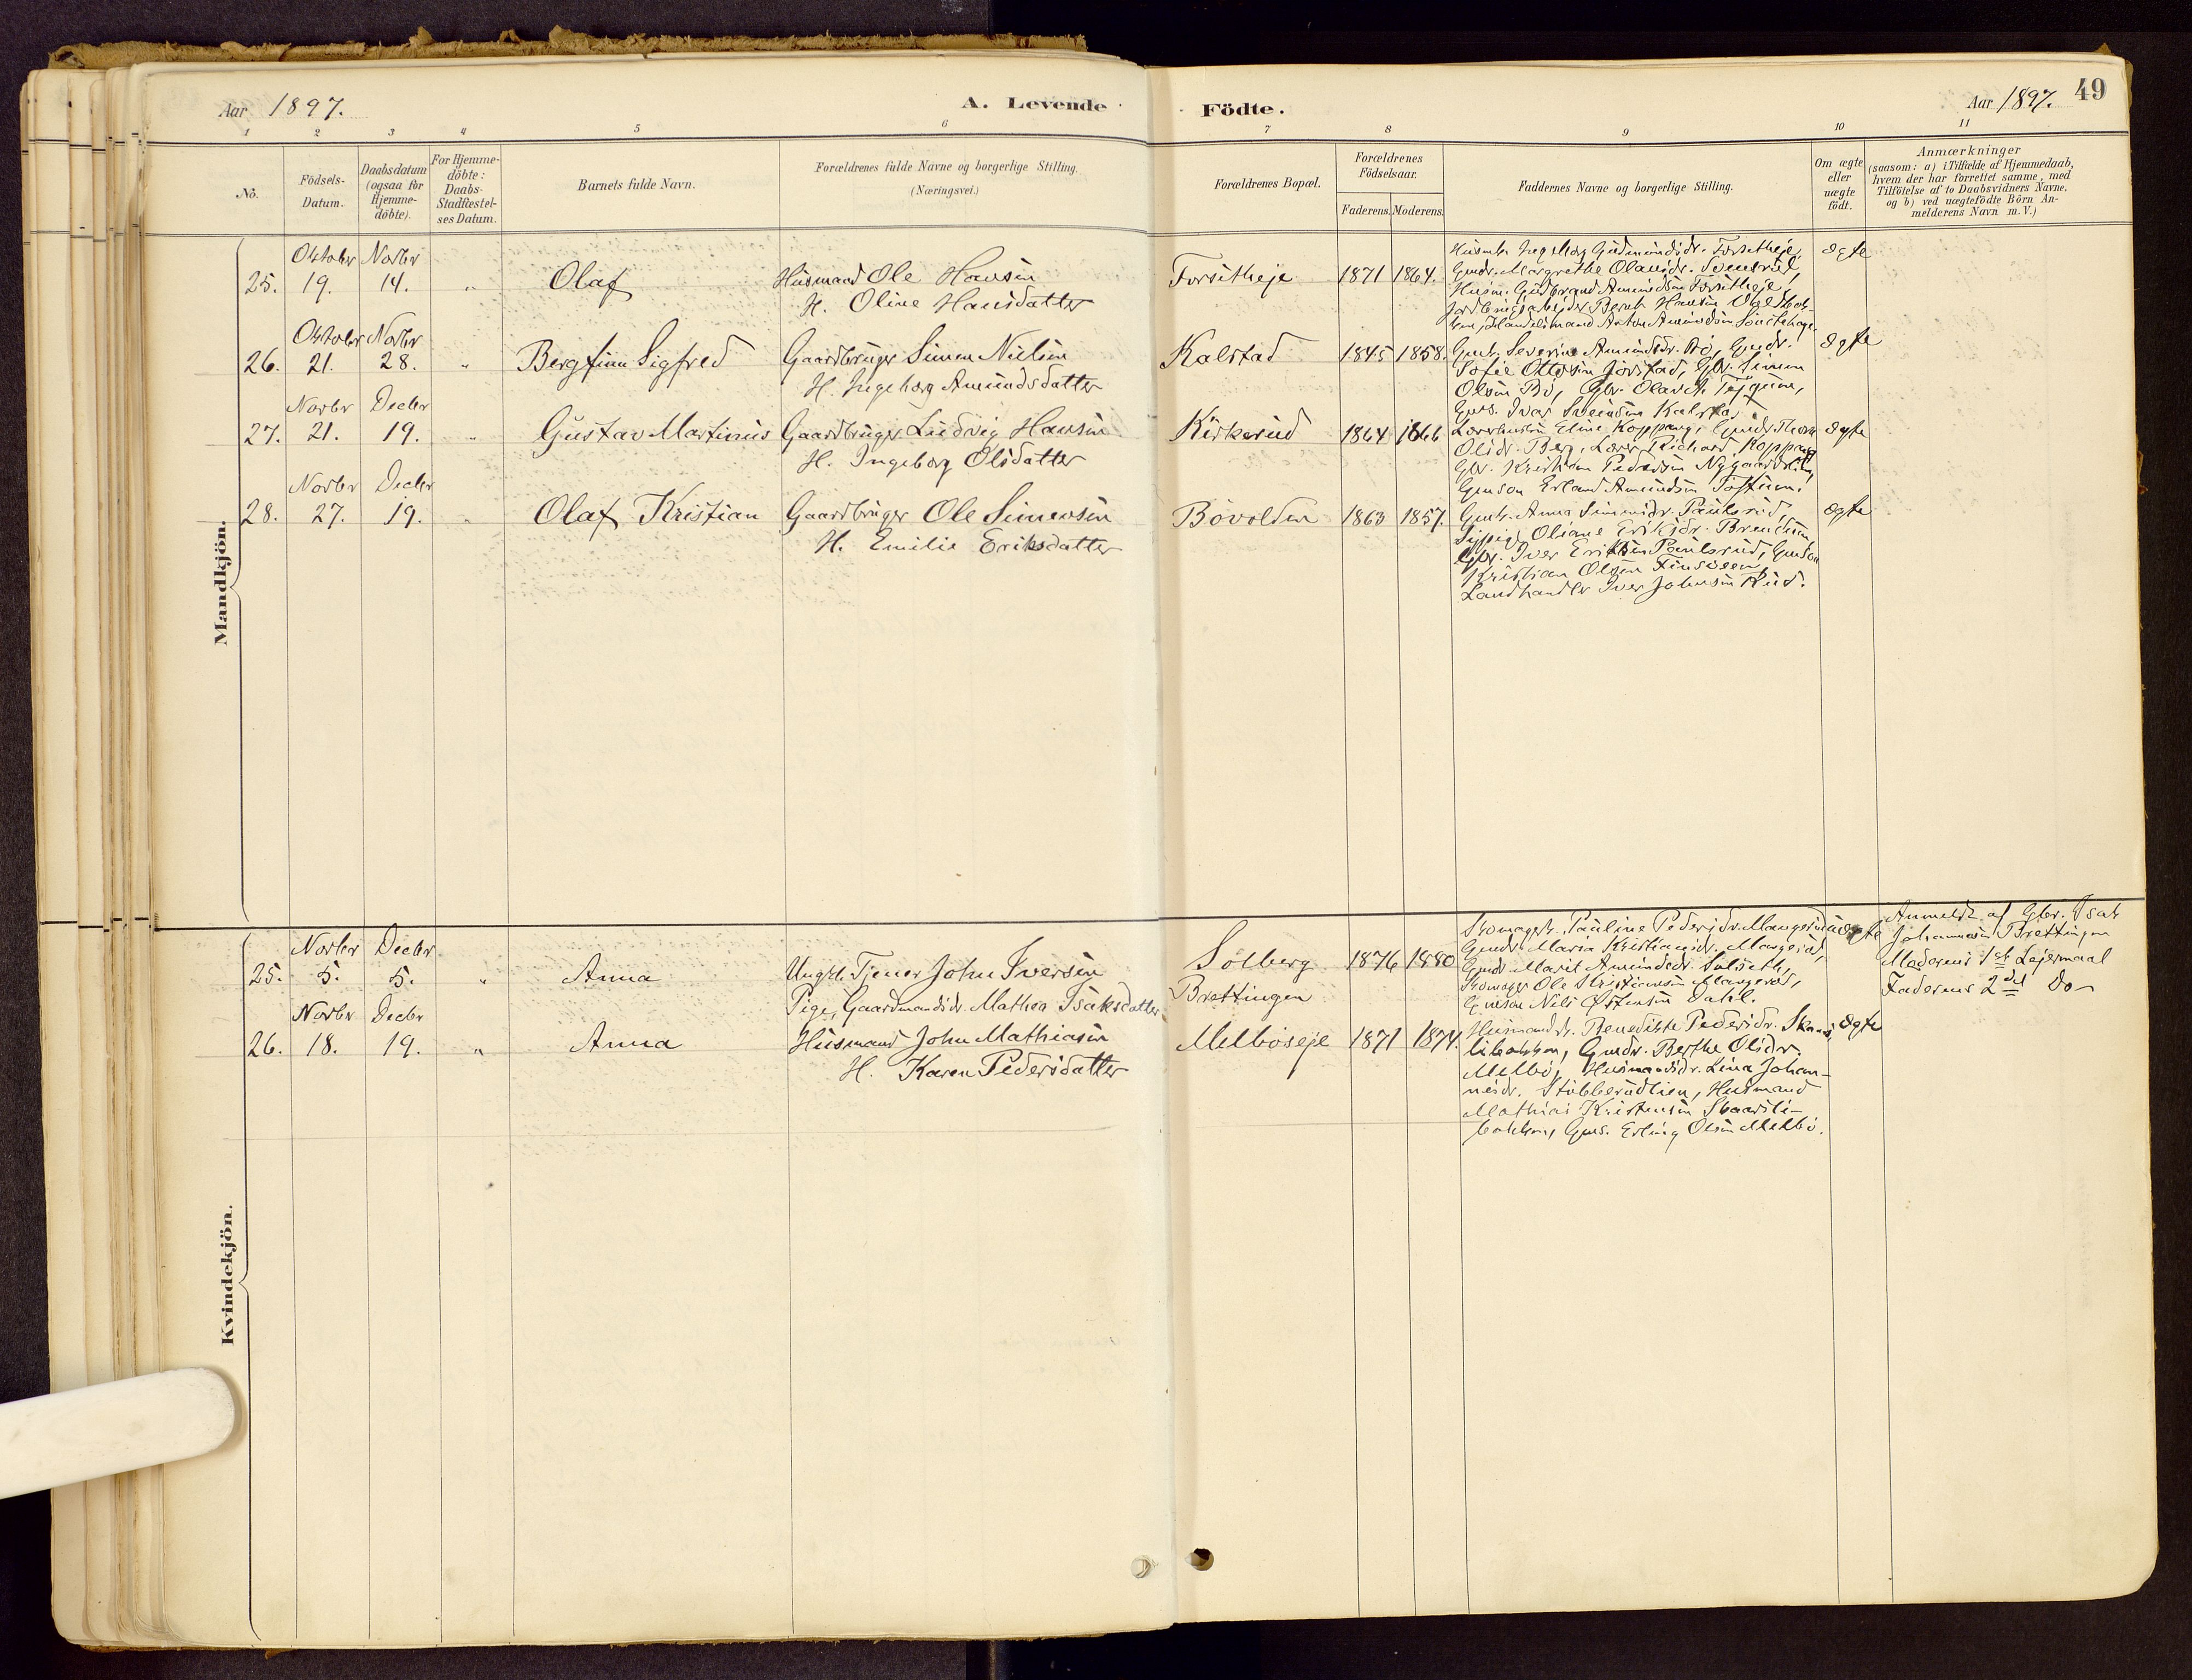 Aar 1897.
A. Levende
Födte.
Aar 1897.
49
1 2 3 4 5 6 7 8 9 10 11
No.
Födsels-
Datum.
Daabsdatum
(ogsaa for
Hjemme-
döbte).
For Hjemme-
döbte:
Daabs-
Stadfæstel-
ses Datum.
Barnets fulde Navn.
Forældrenes fulde Navne og borgerlige Stilling.
(Næringsvei.)
Forældrenes Bopæl.
Forældrenes
Födselsaar.
Faderens. Moderens.
Faddernes Navne og borgerlige Stilling.
Om ægte
eller
uægte
födt.
Anmærkninger
(saasom: a) i Tilfælde af Hjemmedaab,
hvem der har forrettet samme, med
Tilföielse af to Daabsvidners Navne.
og b) ved uægtefödte Börn An-
melderens Navn m. V.)
Mandkjön.
Oktober Novbr
25. 19. 14. " Olaf
Husmand Ole Hansen
H. Oline Hansdatter
Forsetheje 1871 1864.
Gmdr. Margrethe Olausdr.
Husm. Gudbrand Amundsen Forsetheje,
ægte
Oktober Novbr
26. 21. 28. " Bergfinn Sigfred
Gaardbruger Simen Nielsen
H. Ingeborg Amundsdatter
Kalstad 1845 1858.
Gmk. Severine Amundsdr. Bö, Gmdr.
Sofie Ottosen Jorstad, Gbr. Simen
Olsen Bö, Gbr. Olav
Gms. Ivar Svendsen Kalstad
ægte
Novbr Decbr
27. 21. 19. " Gustav Martinus
Gaardbruger Ludvig Hansen
H. Ingeborg Olsdatter
Kirkerud 1864 1866
Lærerhustru Eline Koppang, Gmdr.
Olsdr. Berg, Lærer Richard Koppang
Gbr. Kristian Pedersen
Gmson Erland Amundsen
ægte
Novbr Decbr
28. 27. 19. " Olaf Kristian
Gaardbruger Ole Simensen
H. Emilie Eriksdatter
Bövolden 1863 1857.
Gmk. Anna Simensdr. Paulsrud,
Oliane Eriksdr.
Gbr. Iver Eriksen Paulsrud, Gmson
Kristian Olsen
Landhandler Iver Johnsen Rud.
ægte
Kvindekjön.
Novbr Decbr
25. 5. 5. " Anna
Ungk. Tjener John Iversen
Pige, Gaardmandsdr. Mathea Isaksdatter
Solberg
Brettingen
1876 1880
Skomagerk. Pauline Pedersdr. Mangerud
Gmdr. Maria Kristiansdr. Mangerud,
Gmdr. Marit Amundsdr.
Skomager Ole Kristiansen Mangerud,
Gmson Nils Östensen Dahl.
uægte
Anmeldt af Gbr. Isak
Johannesen Brettingen
Moderens 1ste Lejermaal
Faderens 2det Do
Novbr Decbr
26. 18. 19. " Anna
Husmand John Mathiasen
H. Karen Pedersdatter
Melböseje 1871 1874.
Husmandsk. Benedikte Pedersdr.
Gmdr. Berthe Olsdr.
Melbö, Husmandsdr. Lina Johan-
nesdr. Stubberudlien, Husmand
Mathias Kristensen Skaarsli-
bakken, Gms. Erling Olsen Melbö.
ægte